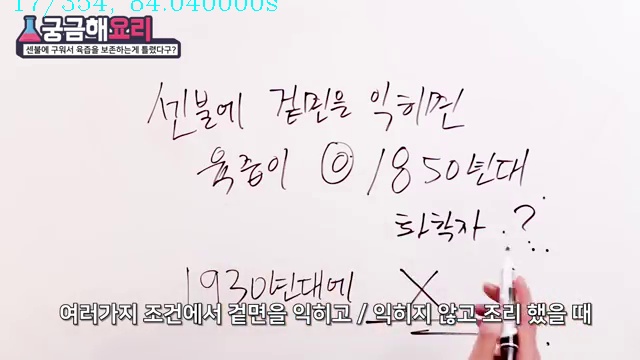 17/354, 84.040000s
궁금해요리
센불에 구워서 육즙을 보존하는게 틀렸다구?
센불에 겉면을 익히면
육즙이 ◎ 1850년대
화학자 . ?
1930년대에 X
여러가지 조건에서 겉면을 익히고 / 익히지 않고 조리 했을 때